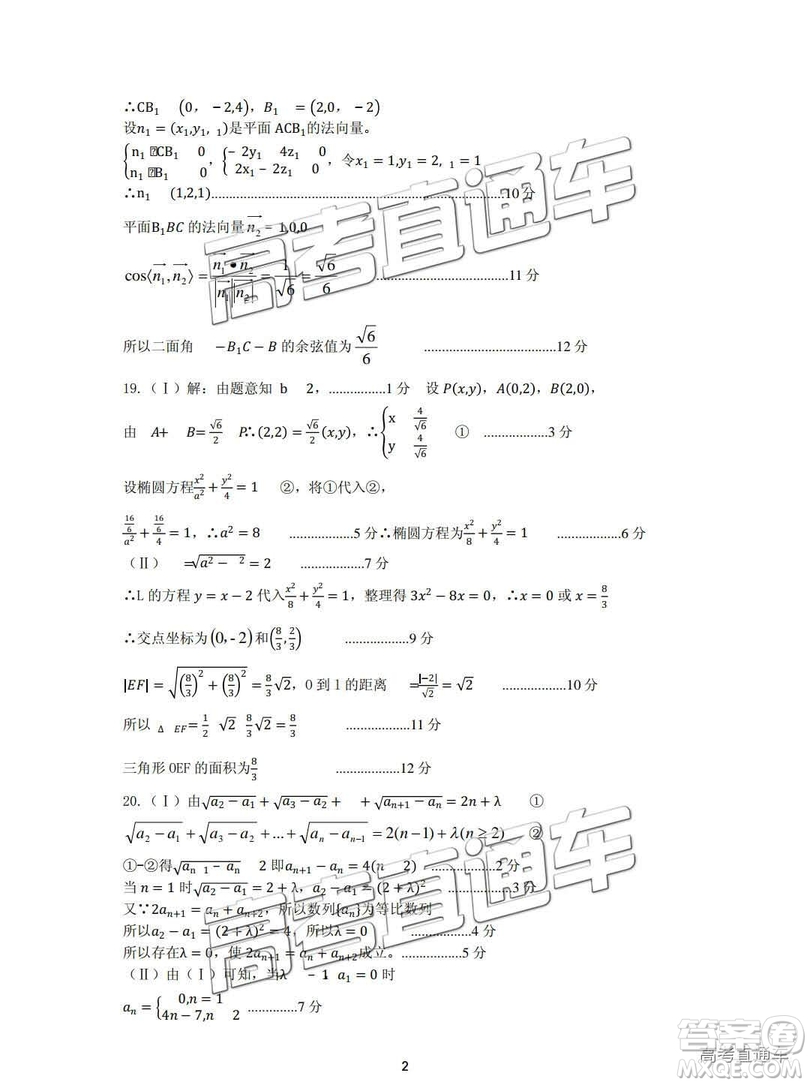 ∴CB₁ (0, −2,4), B₁ =(2,0, −2)
设n₁ = (x₁,y₁, ₁)是平面 ACB₁的法向量。
{n₁ CB₁ 0 n₁ B₁ 0 , {− 2y₁ 4z₁ 0 2x₁ − 2z₁ 0 ,令x₁ = 1,y₁ = 2, ₁ = 1
∴n₁ (1,2,1)..........10 分
平面B₁BC 的法向量 n₂ = 1,0,0
cos⟨n₁,n₂⟩ = n₁•n₂/|n₁||n₂| = 1/√6 = √6/6 ..........11 分
所以二面角 −B₁C − B 的余弦值为 √6/6 ..........12 分
19.(Ⅰ)解:由题意知 b 2,..........1 分 设 P(x,y), A(0,2), B(2,0),
由 A+ B= √6/2 P∴(2,2) = √6/2 (x,y), ∴{x 4/√6 y 4/√6 ① ..........3 分
设椭圆方程 x²/a² + y²/4 = 1 ②,将①代入②,
(16/6)/a² + (16/6)/4 = 1, ∴a² = 8 ..........5 分∴椭圆方程为 x²/8 + y²/4 = 1 ..........6 分
(Ⅱ) =√(a² − ²) = 2 ..........7 分
∴L 的方程 y = x − 2 代入 x²/8 + y²/4 = 1,整理得 3x² − 8x = 0, ∴x = 0 或 x = 8/3
∴交点坐标为 (0, - 2) 和 (8/3, 2/3) ..........9 分
|EF| = √((8/3)² + (8/3)²) = 8/3 √2, O 到 l 的距离 = |−2|/√2 = √2 ..........10 分
所以 Δ EF = 1/2 √2 8/3 √2 = 8/3 ..........11 分
三角形 OEF 的面积为 8/3 ..........12 分
20.(Ⅰ)由√(a₂ − a₁) + √(a₃ − a₂) + + √(aₙ₊₁ − aₙ) = 2n + λ ①
√(a₂ − a₁) + √(a₃ − a₂) + ... + √(aₙ − aₙ₋₁) = 2(n − 1) + λ(n ≥ 2) ②
①−②得√(aₙ ₁ − aₙ) 2 即aₙ₊₁ − aₙ = 4(n 2) ..........2 分
当 n = 1 时√(a₂ − a₁) = 2 + λ, a₂ − a₁ = (2 + λ)² ..........3 分
又∵2aₙ₊₁ = aₙ + aₙ₊₂,所以数列{aₙ}为等比数列
所以a₂ − a₁ = (2 + λ)² = 4,所以λ = 0 ..........4 分
所以存在λ = 0,使 2aₙ₊₁ = aₙ + aₙ₊₂成立。..........5 分
(Ⅱ)由(Ⅰ)可知,当λ − 1 a₁ = 0 时
aₙ = {0,n = 1 4n − 7,n 2 ..........7 分
2
高考直通车
答案圈
高考直通车
MXQE.COM